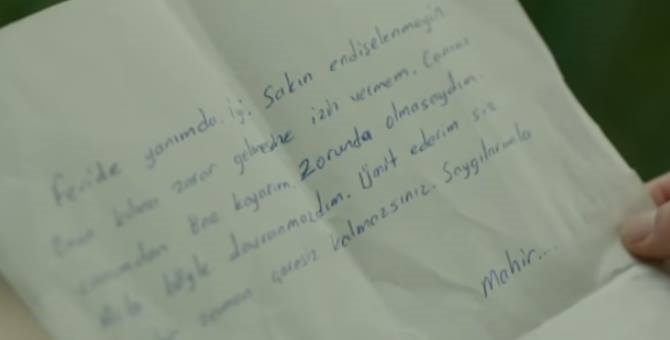 Feride yanımda. İyi. Sakın endişelenmeyin
Onun kılına zarar gelmesine izin vermem. Canımı
canımdan öne koyarım. Zorunda olmasaydım.
Asla böyle davranmazdım. Ümit ederim siz
zaman çaresiz kalmazsınız. Saygılarımla
Mahir...